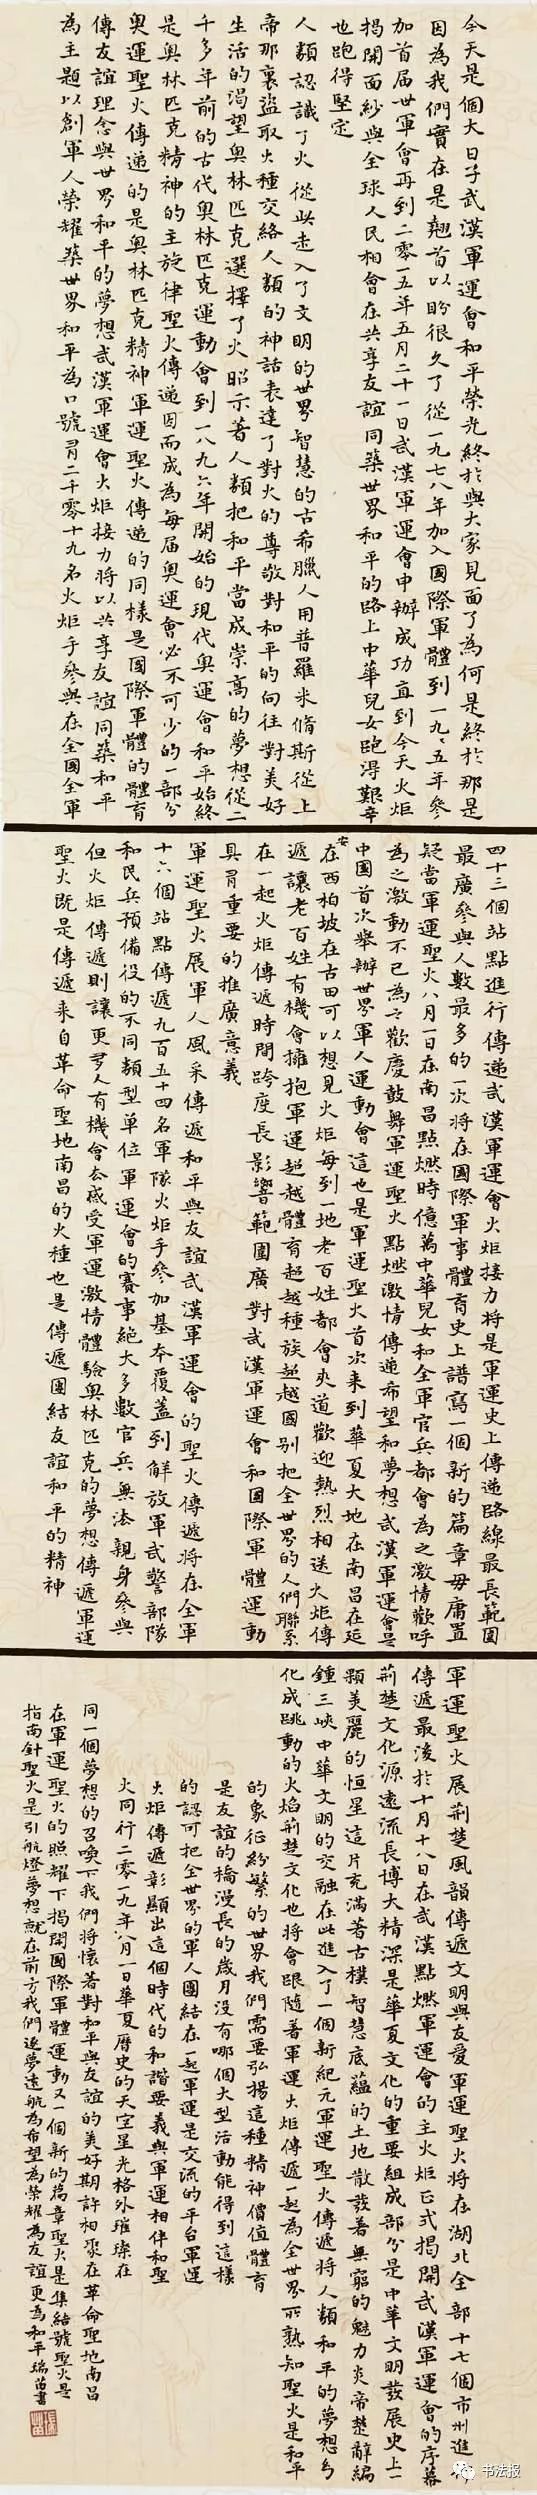 今天是個大日子武漢軍運會和平榮光終於與大家見面了為何是終於那是
因為我們實在是翹首以盼很久了從一九七八年加入國際軍體到一九九五年參
加首届世軍會再到二零一五年五月二十一日武漢軍運會申辦成功直到今天火炬
揭開面紗與全球人民相會在共享友誼同築世界和平的路上中華兒女跑得艱辛
也跑得堅定
人類認識了火從此走入了文明的世界智慧的古希臘人用普羅米脩斯從上
帝那裏盜取火種交給人類的神話表達了對火的尊敬對和平的向往對美好
生活的渴望奧林匹克選擇了火昭示著人類把和平當成崇高的夢想從二
千多年前的古代奧林匹克運動會到一八九六年開始的現代奧運會和平始終
是奧林匹克精神的主旋律聖火傳遞因而成為每届奧運會必不可少的一部分
奧運聖火傳递的是奧林匹克精神軍運聖火傳递的同樣是國際軍體的體育
傳友誼理念與世界和平的夢想武漢軍運會火炬接力將以共享友誼同築和平
為主題以創軍人榮耀築世界和平為口號有二千零十九名火炬手參與在全國全軍
四十三個站點進行傳递武漢軍運會火炬接力將是軍運史上傳递路線最長範圍
最廣參與人數最多的一次將在國際軍事體育史上譜寫一個新的篇章毋庸置
疑當軍運聖火八月一日在南昌點燃時億萬中華兒女和全軍官兵都會為之激情歡呼
為之激動不已為之歡慶鼓舞軍運聖火點燃激情傳递希望和夢想武漢軍運會是
中國首次舉辦世界軍人運動會這也是軍運聖火首次来到華夏大地在南昌在延
安在西柏坡在古田可以想見火炬每到一地老百姓都會夾道歡迎熱烈相送火炬傳
遞讓老百姓有機會擁抱軍運超越體育超越種族超越國别把全世界的人們聯系
在一起火炬傳遞時間跨度長影響範圍廣對武漢軍運會和國際軍體運動
具有重要的推廣意義
軍運聖火展軍人風采傳遞和平與友誼武漢軍運會的聖火傳遞將在全軍
十六個站點傳遞九百五十四名軍隊火炬手參加基本覆蓋到解放軍武警部隊
和民兵預備役的不同類型單位軍運會的賽事絕大多數官兵無法親身參與
但火炬傳遞則讓更多人有機會去感受軍運激情體驗奧林匹克的夢想傳遞軍運
聖火既是傳遞来自革命聖地南昌的火種也是傳遞團結友誼和平的精神
軍運聖火展荊楚風韻傳遞文明與友爱軍運聖火將在湖北全部十七個市州進行
傳遞最後於十月十八日在武漢點燃軍運會的主火炬正式揭開武漢軍運會的序幕
荊楚文化源遠流長博大精深是華夏文化的重要組成部分是中華文明發展史上一
顆美麗的恒星這片充滿著古樸智慧底蘊的土地散發著無窮的魅力炎帝楚辭編
鍾三峽中華文明的交融在此進入了一個新紀元軍運聖火傳遞將人類和平的夢想幻
化成跳動的火焰荊楚文化也將會跟隨著軍運火炬傳遞一起為全世界所熟知聖火是和平
的象征紛繁的世界我們需要弘揚這種精神價值體育
是友誼的橋漫長的歲月没有哪個大型活動能得到這樣
的認可把全世界的軍人團結在一起軍運是交流的平台軍運
火炬傳遞彰顯出這個時代的和諧要義與軍運相伴和聖
火同行二零一九年八月一日華夏曆史的天空星光格外璀璨在
同一個夢想的召喚下我們將懷著對和平與友誼的美好期許相聚在革命聖地南昌
在軍運聖火的照耀下揭開國際軍體運動又一個新的篇章聖火是集結號聖火是
指南針聖火是引航燈夢想就在前方我們逐夢遠航為希望為榮耀為友誼更為和平瑞苗書
书法报